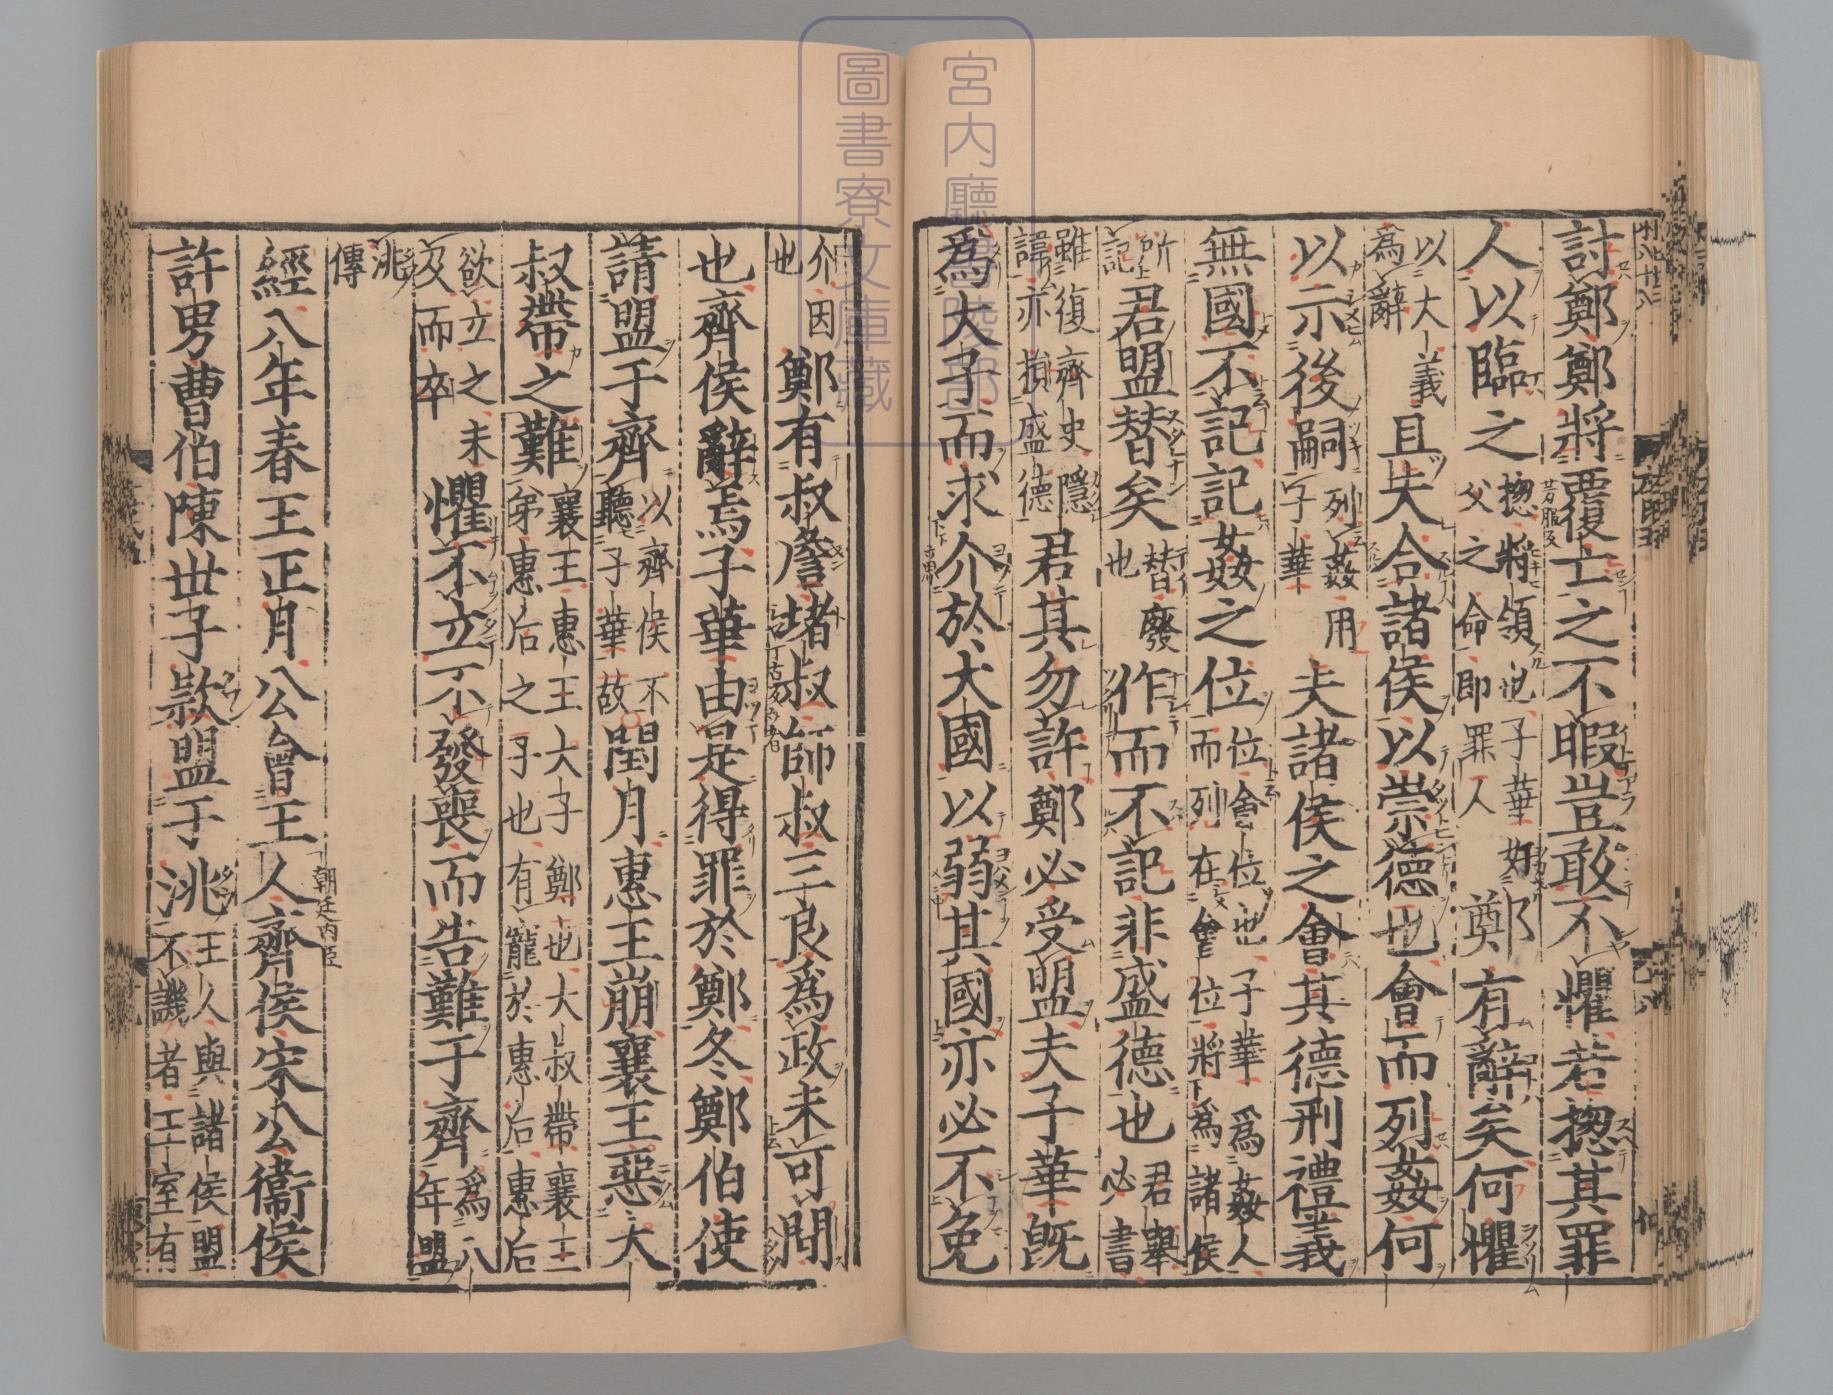 討鄭鄭將覆亡之不暇豈敢不懼若摠其罪
人以臨之摠將領也子華奸父之命即罪人鄭有辭矣何懼
以大義為辭且夫合諸侯以崇德也會而列姦何
以示後嗣列姦用子華夫諸侯之會其德刑禮義
無國不記記姦之位位會位也子華為姦人而列在會位將為諸侯
所記君盟替矣替廢也作而不記非盛德也君舉必書
雖復齊史隱諱亦損盛德君其勿許鄭必受盟夫子華既
為大子而求介於大國以弱其國亦必不免
介因也鄭有叔詹堵叔師叔三良為政未可間
也齊侯辭焉子華由是得罪於鄭冬鄭伯使
請盟于齊以齊侯不聽子華故閏月惠王崩襄王惡大
叔帶之難襄王惠王大子鄭也大叔帶襄王弟惠后之子也有寵於惠后惠后
欲立之未及而卒懼不立不發喪而告難于齊為八年盟
洮傳
經八年春王正月公會王人齊侯宋公衞侯
許男曹伯陳世子款盟于洮王人與諸侯盟不譏者王室有
宮内廳書陵部
圖書寮文庫藏